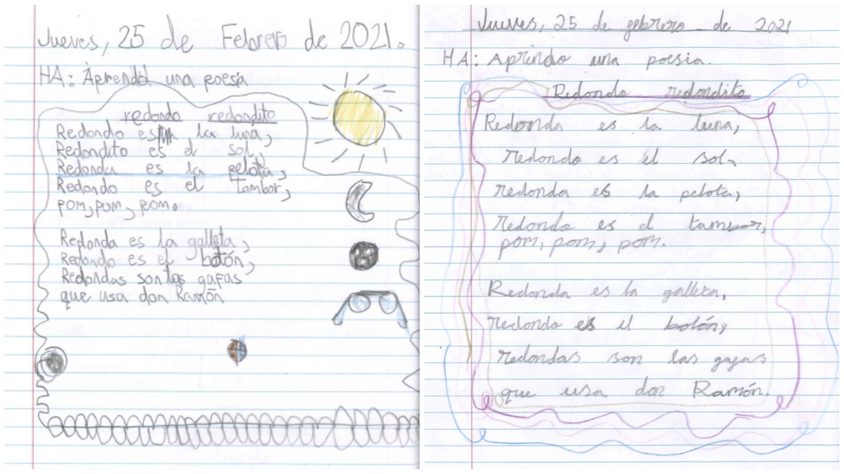 Jueves, 25 de Febrero de 2021.
HA: Aprendo una poesía
redondo redondito
Redondo es la luna,
Redondito es el sol,
Redonda es la pelota,
Redondo es el tambor,
pom, pom, pom.
Redonda es la galleta,
Redondo es el botón,
Redondas son las gafas
que usa don Ramón
Jueves, 25 de febrero de 2021
HA: Aprindo una poesia.
Redondo redondito
Redonda es la luna,
redondo es el sol,
redonda es la pelota,
redondo es el tambor,
pom, pom, pom.
Redonda es la galleta,
redondo es el botón,
redondas son las gafas
que usa don Ramón.